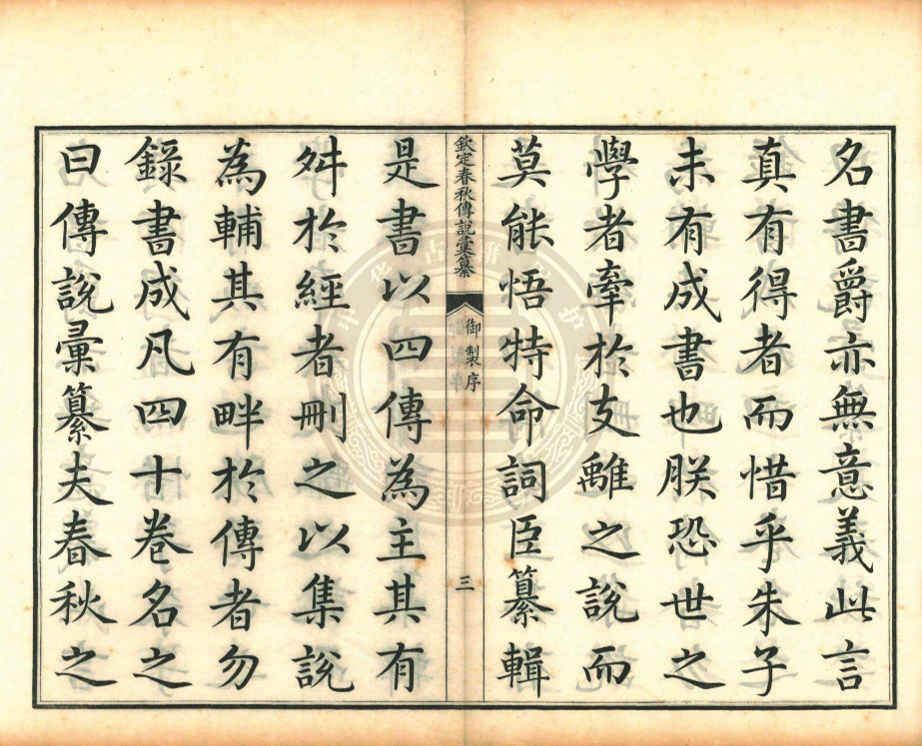 名書爵亦無意義此言
真有得者而惜乎朱子
未有成書也朕恐世之
學者牽於支離之說而
莫能悟特命詞臣纂輯
欽定春秋傳說彙纂
御製序
三
是書以四傳為主其有
舛於經者刪之以集說
為輔其有畔於傳者勿
錄書成凡四十卷名之
曰傳說彙纂夫春秋之